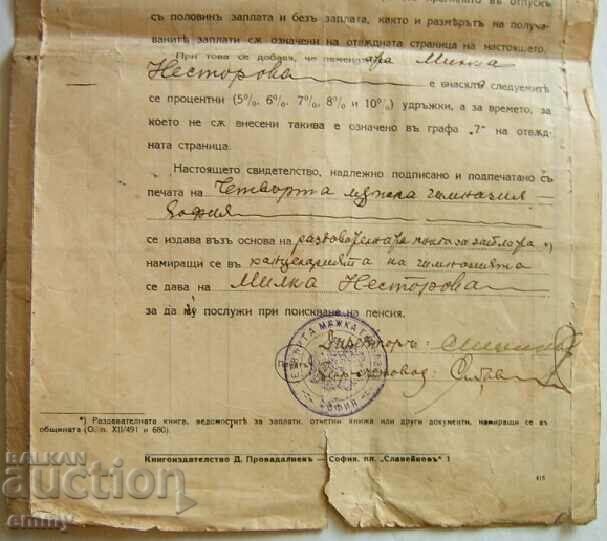 съ половинъ заплата и безъ заплата, както и размѣрътъ на получа-
ванитѣ заплати сѫ означени на отвждната страница на настоящето.
При това се добавя, че
Милка
Несторова
е внасялъ следуемитѣ
се процентни (5%, 6%, 7%, 8% и 10%) удръжки, а за времето, за
което не сѫ внесени такива е означено въ графа „7“ на отвжд-
ната страница.
Настоящето свидетелство, надлежно подписано и подпечатано съ
печата на Четвърта мѫжка гимназия —
София
се издава възъ основа на раздавателната книга за заплата *)
намиращи се въ канцеларията на гимназията
се дава на Милка Несторова
за да му послужи при поискване на пенсия.
Директоръ:
(Печатъ)
ЧЕТВЪРТА МѪЖКА
СОФИЯ
*) Раздавателната книга, ведомоститѣ за заплати, отчетни книжа или други документи, намиращи се въ
общината (О. п. XII/491 и 680).
Книгоиздателство Д. Провадалиевъ — София, пл. „Славейковъ“ 1
415
BALKAN
auction
emmy